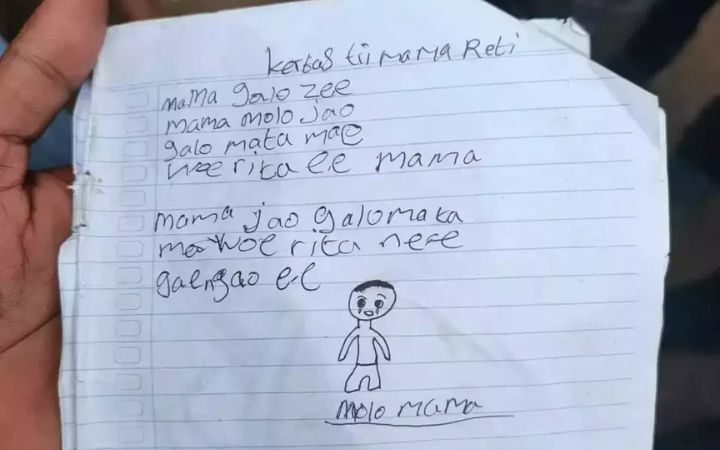 Kertas tii mama Reti
mama galo zee
mama molo jao
galo mata mae
woe rita ee mama
mama jao galo mata
mae woe rita ne-e
gaengao e-e
molo mama